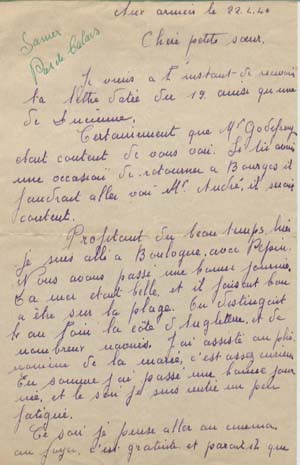 Aux armées le 22.4.40
Samer
Pas de Calais
Chère petite sœur.
Je viens à l'instant de recevoir
ta lettre datée du 19. ainsi qu'une
de Lucienne.
Certainement que Mr Godefroy
était content de vous voir. Si tu avais
une occasion de retourner à Bourges il
faudrait aller voir Mr. André, il serait
content.
Profitant du beau temps, hier
je suis allé à Boulogne avec Pépin.
Nous avons passé une bonne journée.
La mer était belle, et il faisait bon
à être sur la plage. On distinguait
au loin la côte d'Angleterre, et de
nombreux navires. J'ai assisté au phé-
nomène de la marée, c'est assez curieux
En somme j'ai passé une bonne jour-
née, et le soir je suis rentré un peu
fatigué.
Ce soir je pense aller au cinéma
au foyer, c'est gratuite et paraît-il que